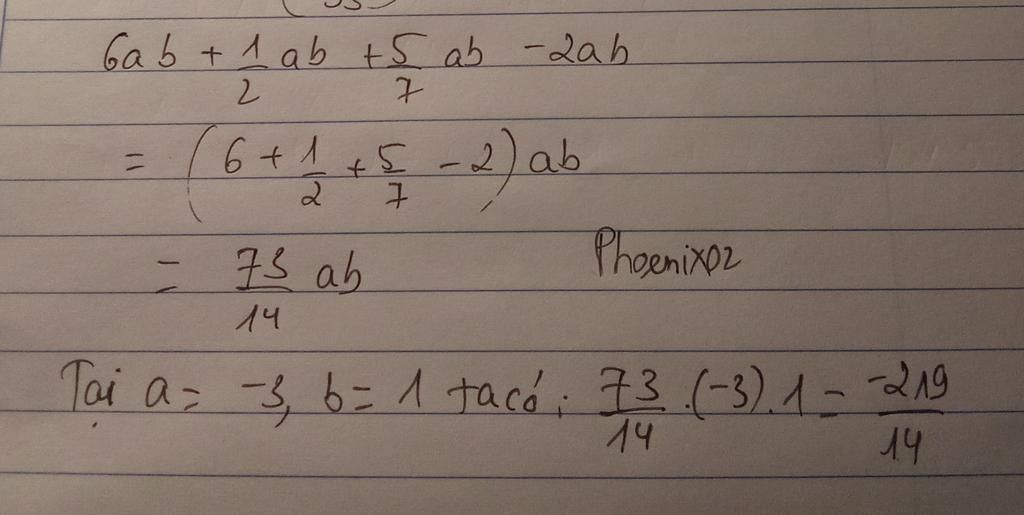 6ab + 1/2 ab + 5/7 ab - 2ab
= (6 + 1/2 + 5/7 - 2) ab
= 73/14 ab Phoenix02
Tại a = -3, b = 1 ta có: 73/14 .(-3).1 = -219/14